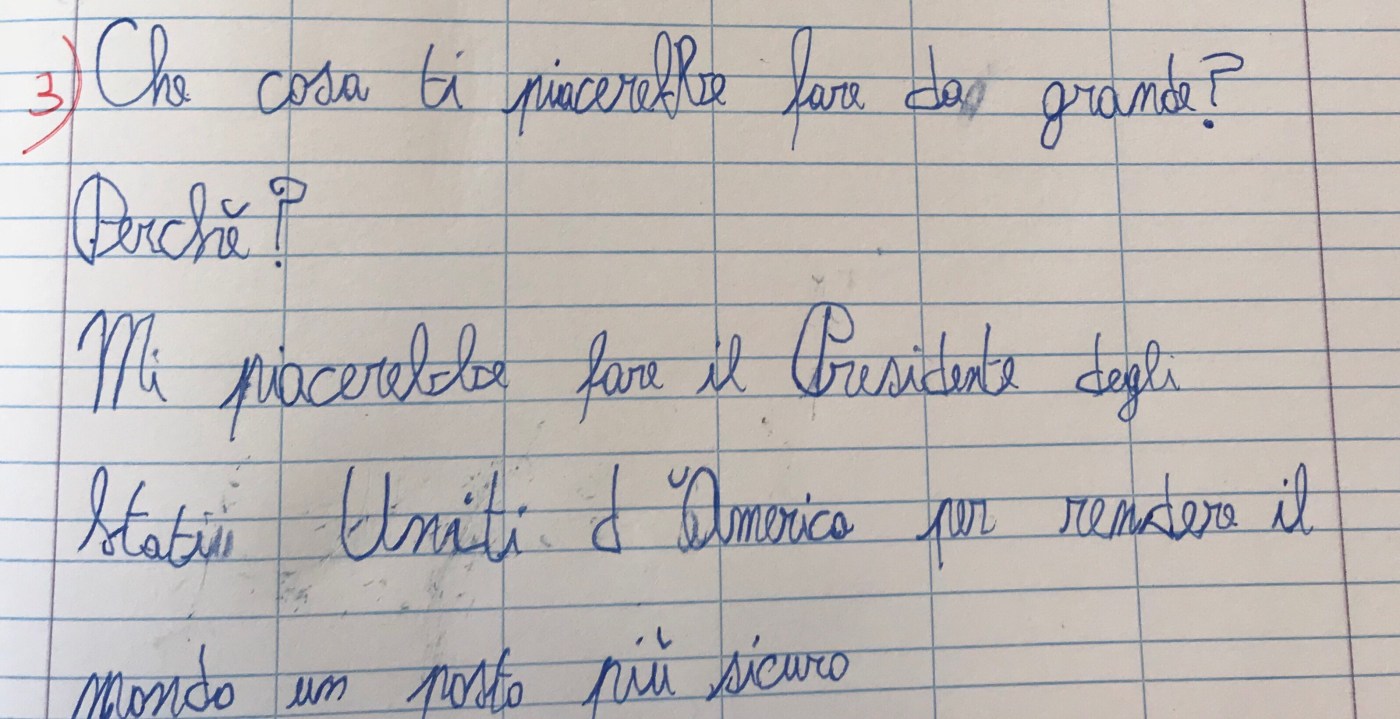 3) Che cosa ti piacerebbe fare da grande?
Perchĕ?
Mi piacerebbe fare il Presidente degli
Stati Uniti d'America per rendere il
mondo un posto più sicuro